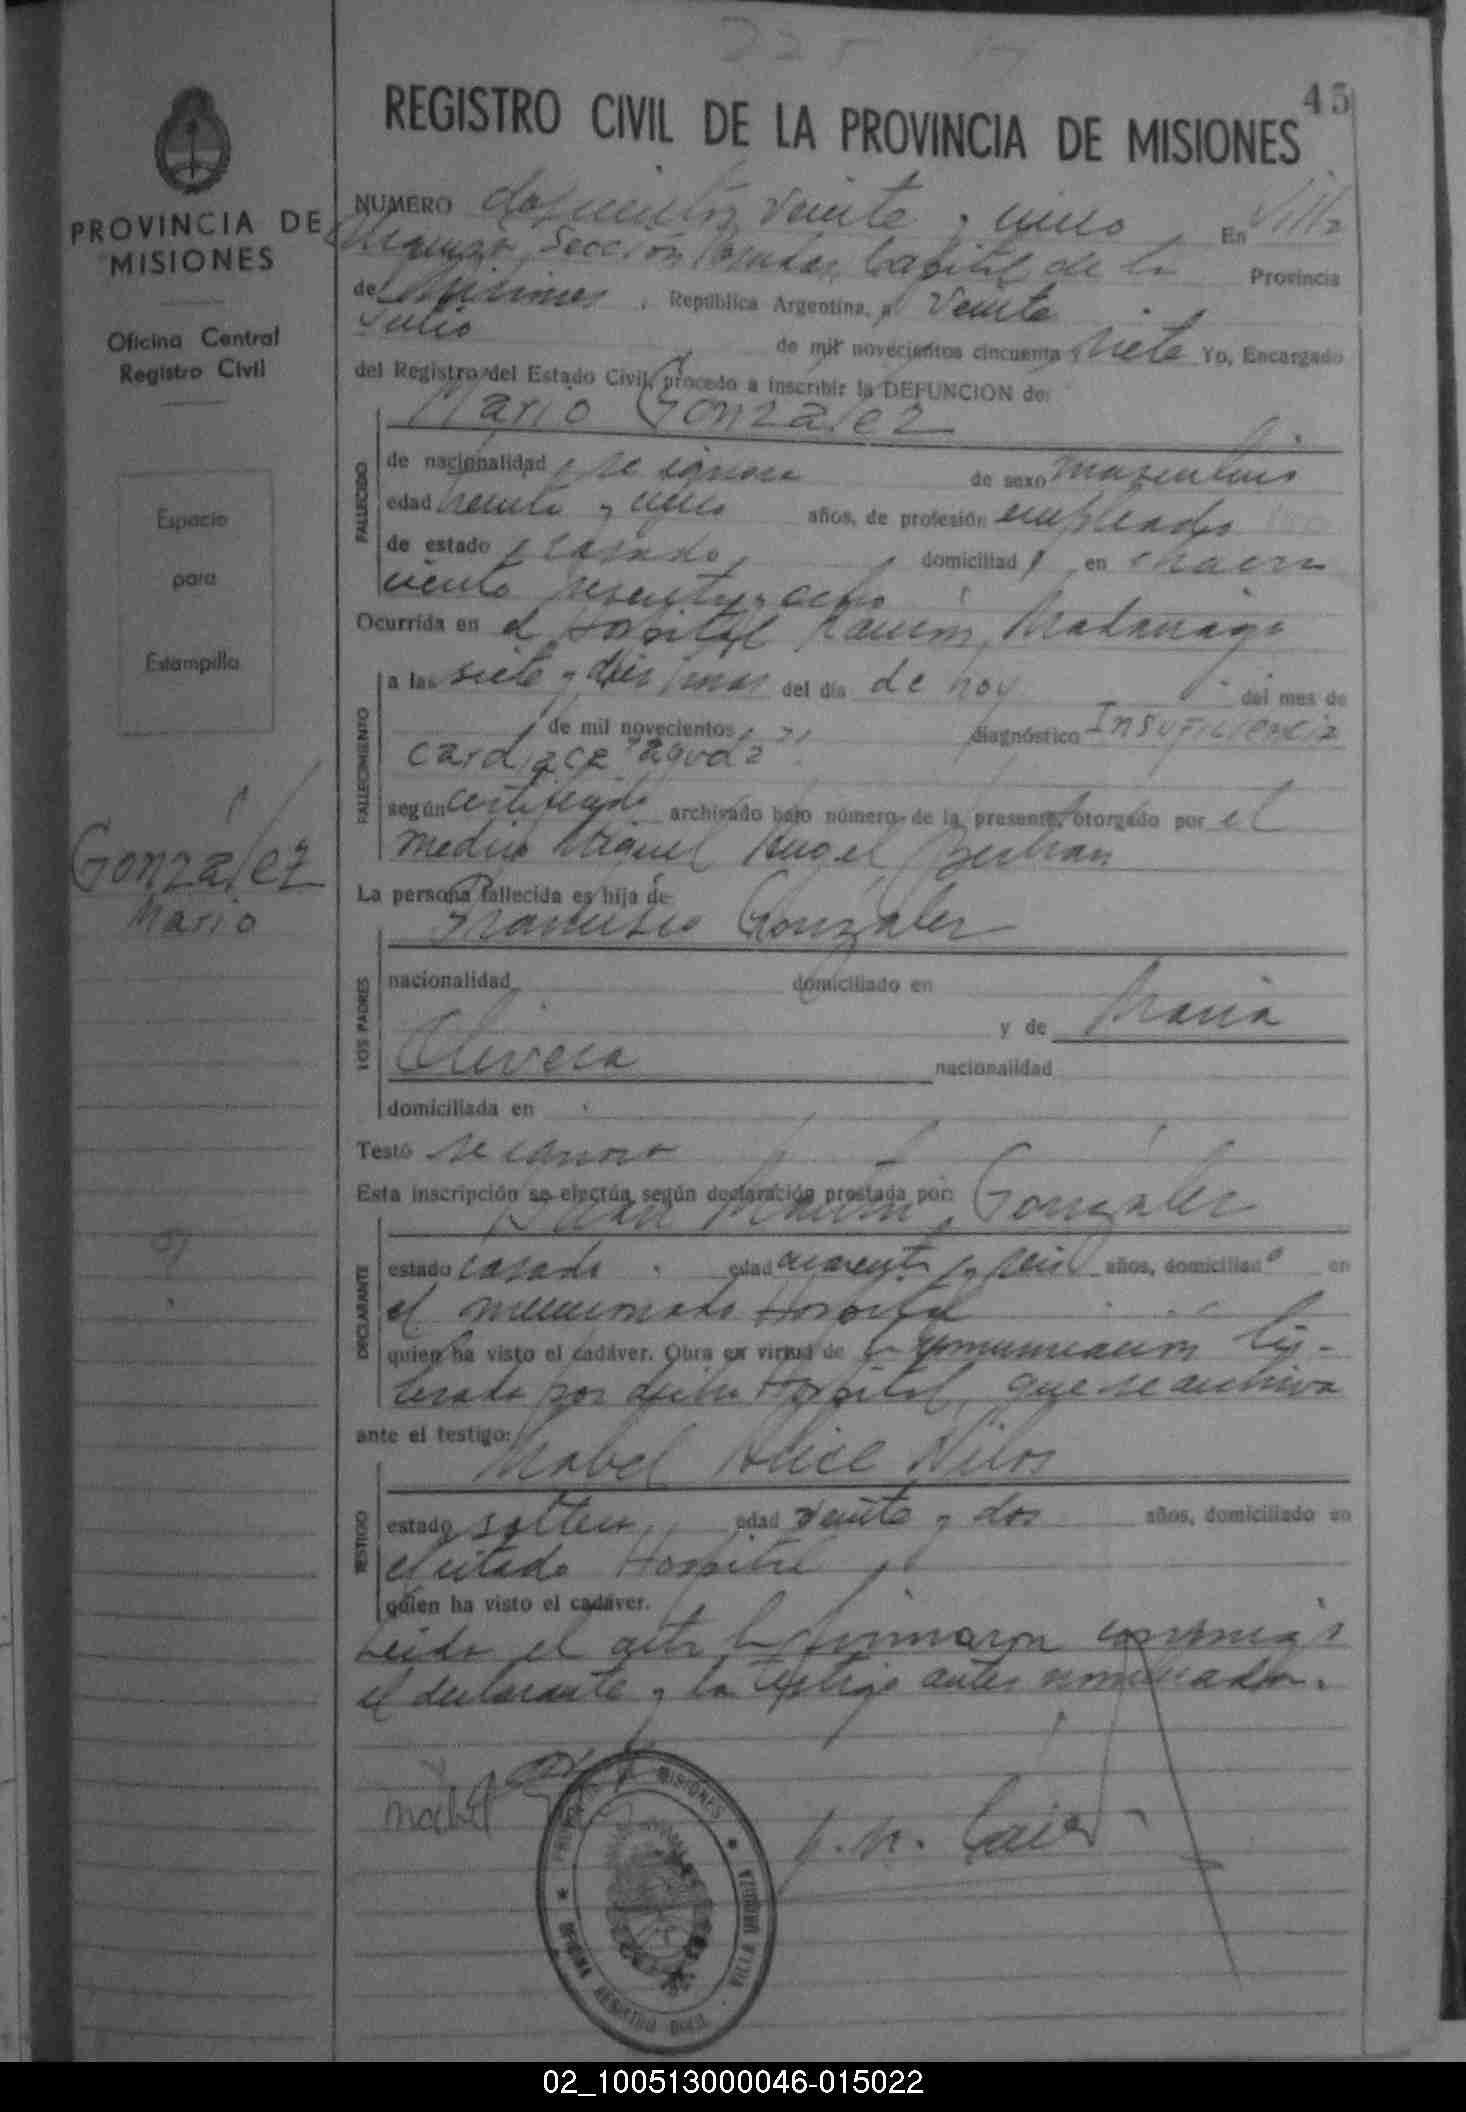 45
REGISTRO CIVIL DE LA PROVINCIA DE MISIONES
PROVINCIA DE
MISIONES
Oficina Central
Registro Civil
Espacio
para
Estampilla
González
Mario
NUMERO doscientos veinte y cinco En Villa
Urquiza, Sección Posadas, Capital de la Provincia
de Misiones, República Argentina, a veinte
Julio de mil novecientos cincuenta y siete Yo, Encargado
del Registro del Estado Civil, procedo a inscribir la DEFUNCION de:
Mario González
FALLECIDO
de nacionalidad se ignora de sexo masculino
edad y cinco años, de profesión empleado
de estado casado domiciliad en chacra
ciento sesenta y ocho
Ocurrida en el Hospital Ramón Madariaga
FALLECIMIENTO
a las siete y diez horas del día de hoy del mes de
de mil novecientos diagnóstico Insuficiencia
cardiaca "aguda"
según certificado archivado bajo número de la presente, otorgado por el
medico Miguel Angel Bertran
La persona fallecida es hija de
Francisco González
LOS PADRES
nacionalidad domiciliado en
y de María
Olivera nacionalidad
domiciliada en
Testó se ignora
Esta inscripción se efectúa según declaración prestada por:
Juan Martín González
DECLARANTE
estado casado edad cuarenta y seis años, domiciliado en
el mencionado Hospital
quien ha visto el cadáver. Obra en virtud de la comunicación li-
brada por dicho Hospital, que se archiva
ante el testigo:
Mabel Alice
TESTIGO
estado soltera edad veinte y dos años, domiciliado en
el citado Hospital
quien ha visto el cadáver.
Leida el acta la firmaron conmigo
el declarante y la testigo antes nombrados.
Mabel
PROVINCIA DE MISIONES
VILLA URQUIZA
OFICINA REGISTRO CIVIL
02_100513000046-015022